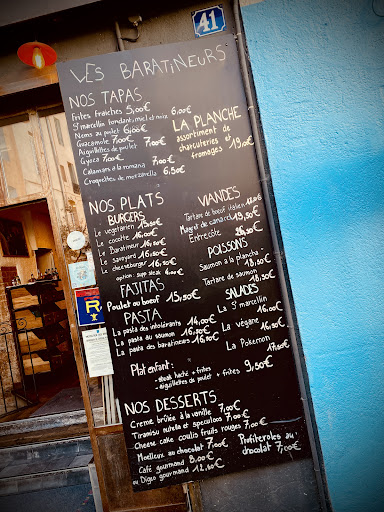 41
LES BARATINEURS
NOS TAPAS
Frites fraîches 5,00€
St marcellin fondant, miel et noix 6,00€
Nems au poulet 6,00€
Guacamole 7,00€
Aiguillettes de poulet 7,00€
Gyoza 7,00€
Calamars à la romana 7,00€
Croquettes de mozzarella 6,50€
LA PLANCHE
assortiment de
charcuteries et
fromages 19,00€
NOS PLATS
BURGERS
Le végétarien 15,50€
Le cocotte 16,00€
Le Baratineur 16,50€
Le savoyard 16,50€
Le cheeseburger 16,50€
option : supp steak
FAJITAS
Poulet ou boeuf 15,50€
PASTA
La pasta des intolérants 16,50€
La pasta au saumon 16,50€
La pasta des baratineurs 16,50€
VIANDES
Tartare de boeuf italien
Magret de canard 19,50€
Entrecôte
POISSONS
Saumon à la plancha
18,50€
Tartare de saumon
18,50€
SALADES
La St marcellin
16,50€
La végane
16,50€
La Pokemon
17,50€
Plat enfant :
- steak haché + frites
- aiguillettes de poulet + frites
9,50€
NOS DESSERTS
Creme brûlée à la vanille 7,00€
Tiramisu nutella et speculoos 7,00€
Cheese cake coulis fruits rouges 7,00€
Moelleux au chocolat 7,00€
Café gourmand 8,00€
ou Digeo gourmand 12,50€
Profiteroles au
chocolat 7,00€